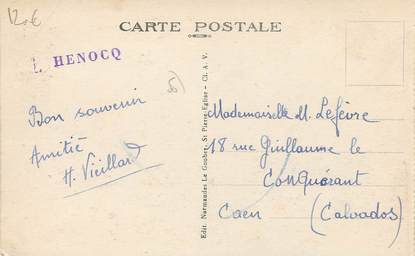 12€
CARTE POSTALE
L. HENOCQ
5)
Bon souvenir
Amitié
H. Vieillard
Edit. Normandes Le Goubey, St Pierre-Eglise - Cl. A. V.
Mademoiselle M. Lefèvre
18 rue Guillaume le
Conquérant
Caen (Calvados)